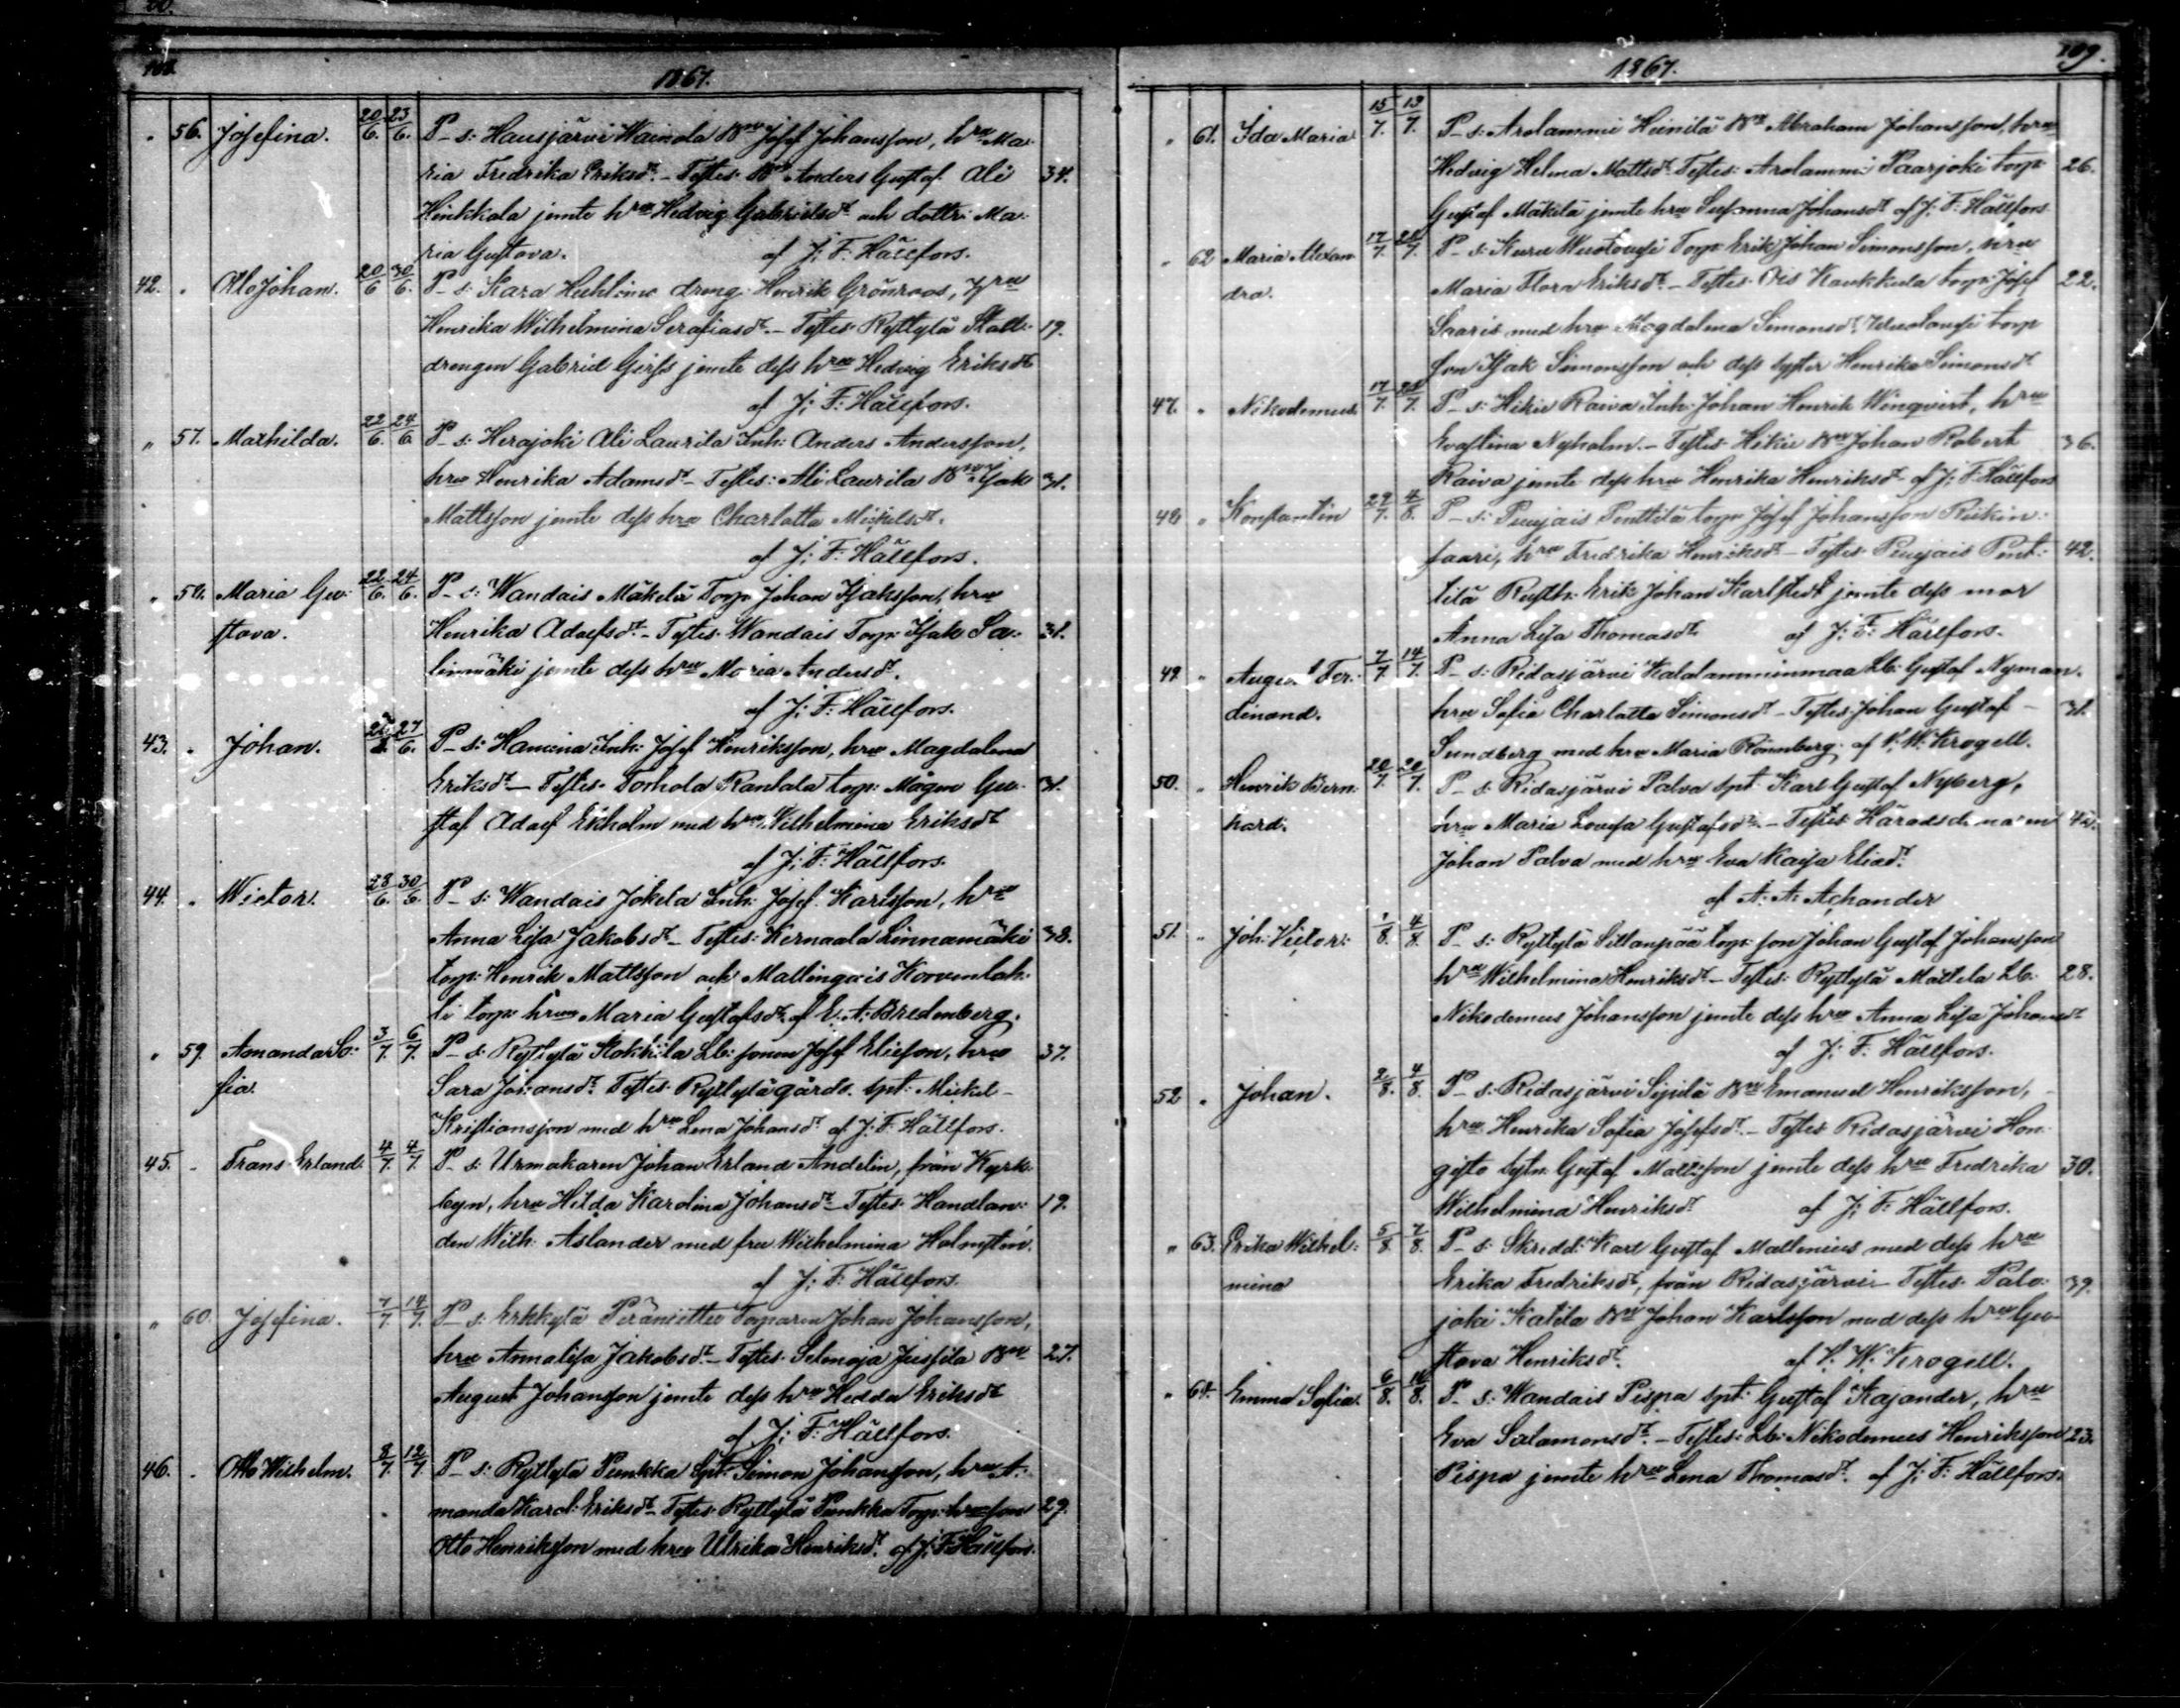 108.
1867.
" 56. Josefina. 20/6. 23/6. P_ s: Hausjärvi Wainola Bn Josef Johansson, hru Ma-
ria Fredrika Eriksdr. – Testes: Bn Anders Gustaf Ali 34.
Hinkkala jemte hru Hedvig Gabrielsdr och dottr: Ma-
ria Gustava. af J: F: Hällfors.
42. " Otto Johan. 20/6 30/6. P_ s: Kara dreng Henrik Grönroos, hru
Henrika Wilhelmina Serafiasdr. – Testes: Ryttylä Stall- 19.
drengen Gabriel Girss jemte dess hru Hedvig Eriksdr
af J: F: Hällfors.
" 57. Mathilda. 22/6. 24/6 P_ s: Herajoki Ali Laurila Inh: Anders Andersson,
hru Henrika Adamsdr – Testes: Ali Laurila Bn Isak 31.
Mattsson jemte dess hru Charlotta Mickelsdr.
af J: F: Hällfors.
" 58. Maria Gu- 22/6. 24/6. P_ s: Wandais Mäkelä Torp: Johan Isaksson, hru
stava. Henrika Adolfsdr – Testes: Wandais Torp: Isak Sa- 31.
linmäki jemte dess hru Maria Andersdr.
af J: F: Hällfors.
43. " Johan. 27/6. P_ s: Hamina Inh: Josef Henriksson, hru Magdalena
Eriksdr – Testes: Torhola Rantala torp: Mågen Gu- 31.
staf Adolf Ekholm med hru Wilhelmina Eriksdr
af J: F: Hällfors.
44. " Wictor. 28/6. 30/6. P_ s: Wandais Jokela Inh: Josef Karlsson, hru
Anna Lisa Jakobsdr – Testes: Kernaala Linnamäki 38.
torp: Henrik Mattsson och Mallinqvais Korvenlah-
ti torp: hru Maria Gustafsdr af E. A: Bredenberg.
" 59. Amanda So- 3/7. 6/7. P_ s: Ryttylä Kokkila Lb: sonen Josef Eliesson, hru 37.
fia. Sara Johansdr. Testes: Ryttylägårds spt: Mickel
Kristiansson med hru Lena Johansdr af J: F: Hällfors.
45. " Frans Erland. 4/7. 4/7. P_ s: Urmakaren Johan Erland Andelin, från Kyrk-
byn, hru Hilda Karolina Johansdr – Testes: Handlan- 19.
den Wilh: Aslander med fru Wilhelmina Holmsten.
af J: F: Hällfors.
" 60. Josefina. 7/7. 14/7. P_ s: Erkkylä Torparen Johan Johansson,
hru Annalisa Jakobsdr – Testes: Selmoja Jussila Bn 27.
August Johansson jemte dess hru Hedda Eriksdr
af J: F: Hällfors.
46. " Otto Wilhelm. 8/7. 12/7 P_ s: Ryttylä Punkka Spt: Simon Johansson, hru A-
manda Karol: Eriksdr – Testes: Ryttylä Punkka Torp: son 29.
Otto Henriksson med hru Ulrika Henriksdr. af J: F: Hällfors.
109.
1867.
" 61. Ida Maria 15/7. 19/7. P_ s: Arolammi Heinilä Bn Abraham Johansson, hru
Hedvig Helena Mattsdr Testes: Arolammi Paarjoki torp: 26.
Gustaf Mäkelä jemte hru Susanna Johansdr af J: F: Hällfors.
" 62 Maria Alexan- 17/7. 28/7. P_ s: Kuru Torp: Erik Johan Simonsson, hru
dra. Maria Flora Eriksdr – Testes: Ois Kaukkula torp: Josef 22.
Saaris med hru Magdalena Simonsdr, torp:
son Isak Simonsson och dess syster Henrika Simonsdr
47. " Nikodemus. 17/7. 28/7. P_ s: Hikiä Raiva Inh: Johan Henrik Winqvist, hru
Evastina Nyholm. – Testes: Hikiä Bn Johan Robert 36.
Raiva jemte dess hru Henrika Henriksdr af J: F: Hällfors
48 " Konstantin 29/7. 4/8. P_ s: Puujais Penttilä torp: Josef Johansson
saari, hru Fredrika Henriksdr – Testes: Puujais Pent- 42.
tilä Rusth: Erik Johan Karlstedt jemte dess mor
Anna Lisa Thomasdr. af J: F: Hällfors.
49. " August Fer- 7/7. 14/7. P_ s: Ridasjärvi Kalalamminmaa Lb: Gustaf Nyman.
dinand. hru Sofia Charlotta Simonsdr – Testes: Johan Gustaf 31.
Sundberg med hru Maria Rönnberg. af V. W. Krogell.
50. " Henrik Bern- 20/7. 20/7. P_ s: Ridasjärvi Palva Spt: Karl Gustaf Nyberg,
hard. hru Maria Lovisa Gustafsdr. – Testes: 42.
Johan Palva med hru Eva Kaisa Eliedr.
af A: A: Açhander
51. " Joh: Victor. 1/8. 4/8. P_ s: Ryttylä Sillanpää torp: son Johan Gustaf Johansson
hru Wilhelmina Henriksdr – Testes: Ryttylä Mattela Lb: 28.
Nikodemus Johansson jemte dess hru Anna Lisa Johansdr
af J: F: Hällfors.
52 " Johan. 2/8. 4/8. P_ s: Ridasjärvi Seppälä Bn Emanuel Henriksson,
hru Henrika Sofia Josefsdr. – Testes: Ridasjärvi Hon-
gisto Gustaf Mattsson jemte dess hru Fredrika 30.
Wilhelmina Henriksdr af J: F: Hällfors.
" 63. Erika Wilhel- 5/8. 7/8. P_ s: Skredd: Karl Gustaf Mallenius med dess hru
mina Erika Fredriksdr, från Ridasjärvi – Testes: Palo- 39.
joki Katila Bn Johan Karlsson med dess hru Gu-
stava Henriksdr. af V: W: Krogell.
" 64. Emma Sofia. 6/8. 10/8. P_ s: Wandais Pispa Spt: Gustaf Kajander, hru
Eva Salomonsdr. – Testes: Lb: Nikodemus Henriksson 23.
Pispa jemte hru Lena Thomasdr. af J: F: Hällfors.